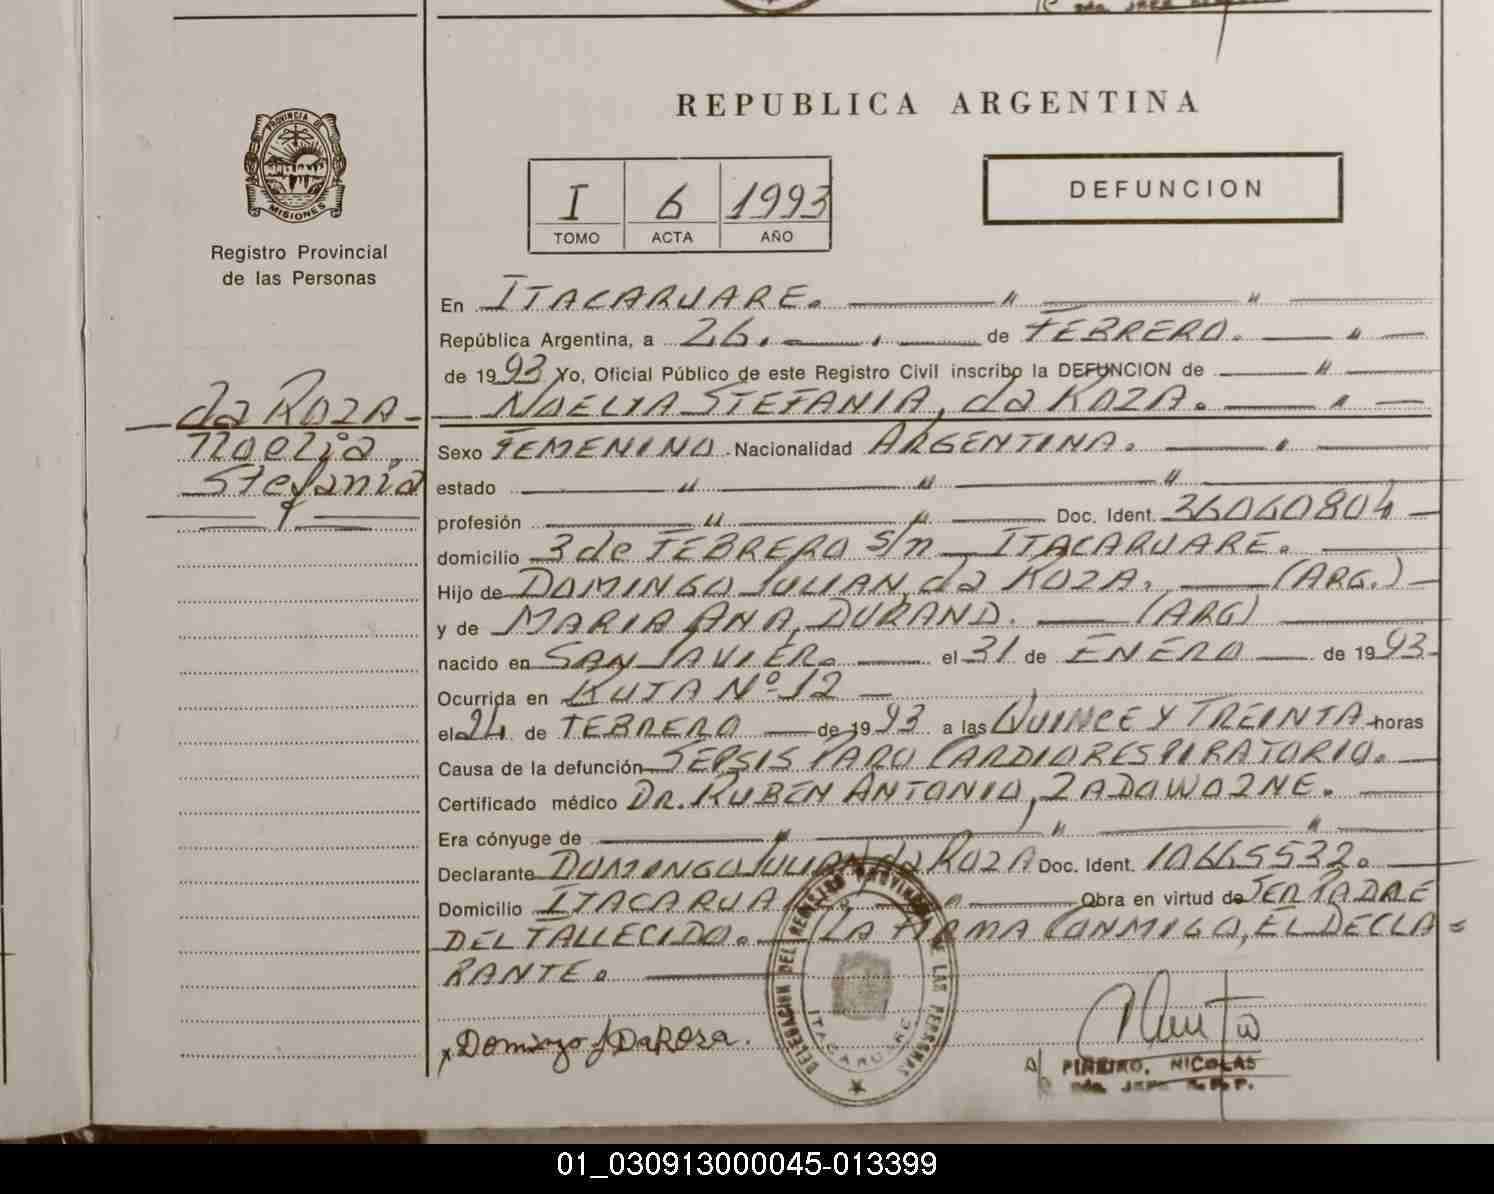 REPUBLICA ARGENTINA
PROVINCIA DE
MISIONES
Registro Provincial
de las Personas
I 6 1993
TOMO ACTA AÑO
DEFUNCION
da ROZA
Noelia
Stefania
En ITACARUARE.
República Argentina, a 26. de FEBRERO.
de 1993 Yo, Oficial Público de este Registro Civil inscribo la DEFUNCION de
NOELIA STEFANIA, da ROZA.
Sexo FEMENINO. Nacionalidad ARGENTINA.
estado
profesión Doc. Ident. 36060804
domicilio 3 de FEBRERO S/n ITACARUARE.
Hijo de DOMINGO JULIAN, da ROZA. (ARG.)
y de MARIA ANA, DURAND. (ARG)
nacido en SAN JAVIER. el 31 de ENERO de 1993
Ocurrida en RUTA Nº 12
el 24 de FEBRERO de 1993 a las QUINCE Y TREINTA horas
Causa de la defunción SEPSIS PARO CARDIORESPIRATORIO.
Certificado médico DR. RUBEN ANTONIO, ZADOWOZNE.
Era cónyuge de
Declarante DOMINGO JULIAN da ROZA Doc. Ident. 10665532.
Domicilio ITACARUA Obra en virtud de SER PADRE
DEL FALLECIDO. LA FIRMA CONMIGO, EL DECLA=
RANTE.
DELEGACION DEL REGISTRO PROVINCIAL DE LAS PERSONAS
ITACARUARE
Domingo J DaRosa.
PIÑEIRO, NICOLAS
01_030913000045-013399